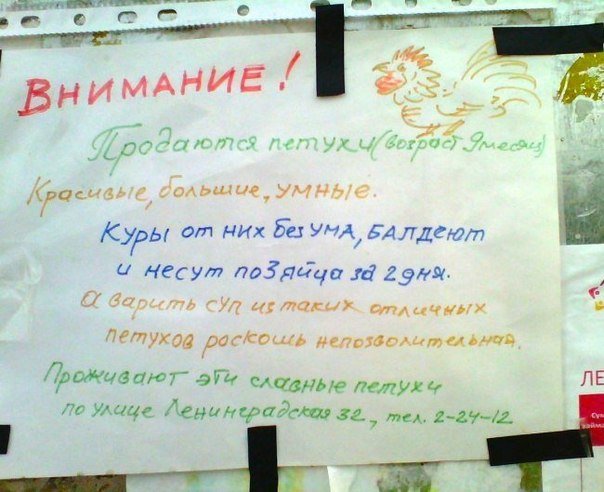 ВНИМАНИЕ!
Продаются петухи (возраст 9 месяц)
Красивые, большие, умные.
Куры от них без ума, балдеют
и несут по 3 яйца за 2 дня.
А варить суп из таких отличных
петухов роскошь непозволительная.
Проживают эти славные петухи
по улице Ленинградская 32, тел. 2-24-12
ЛЕ